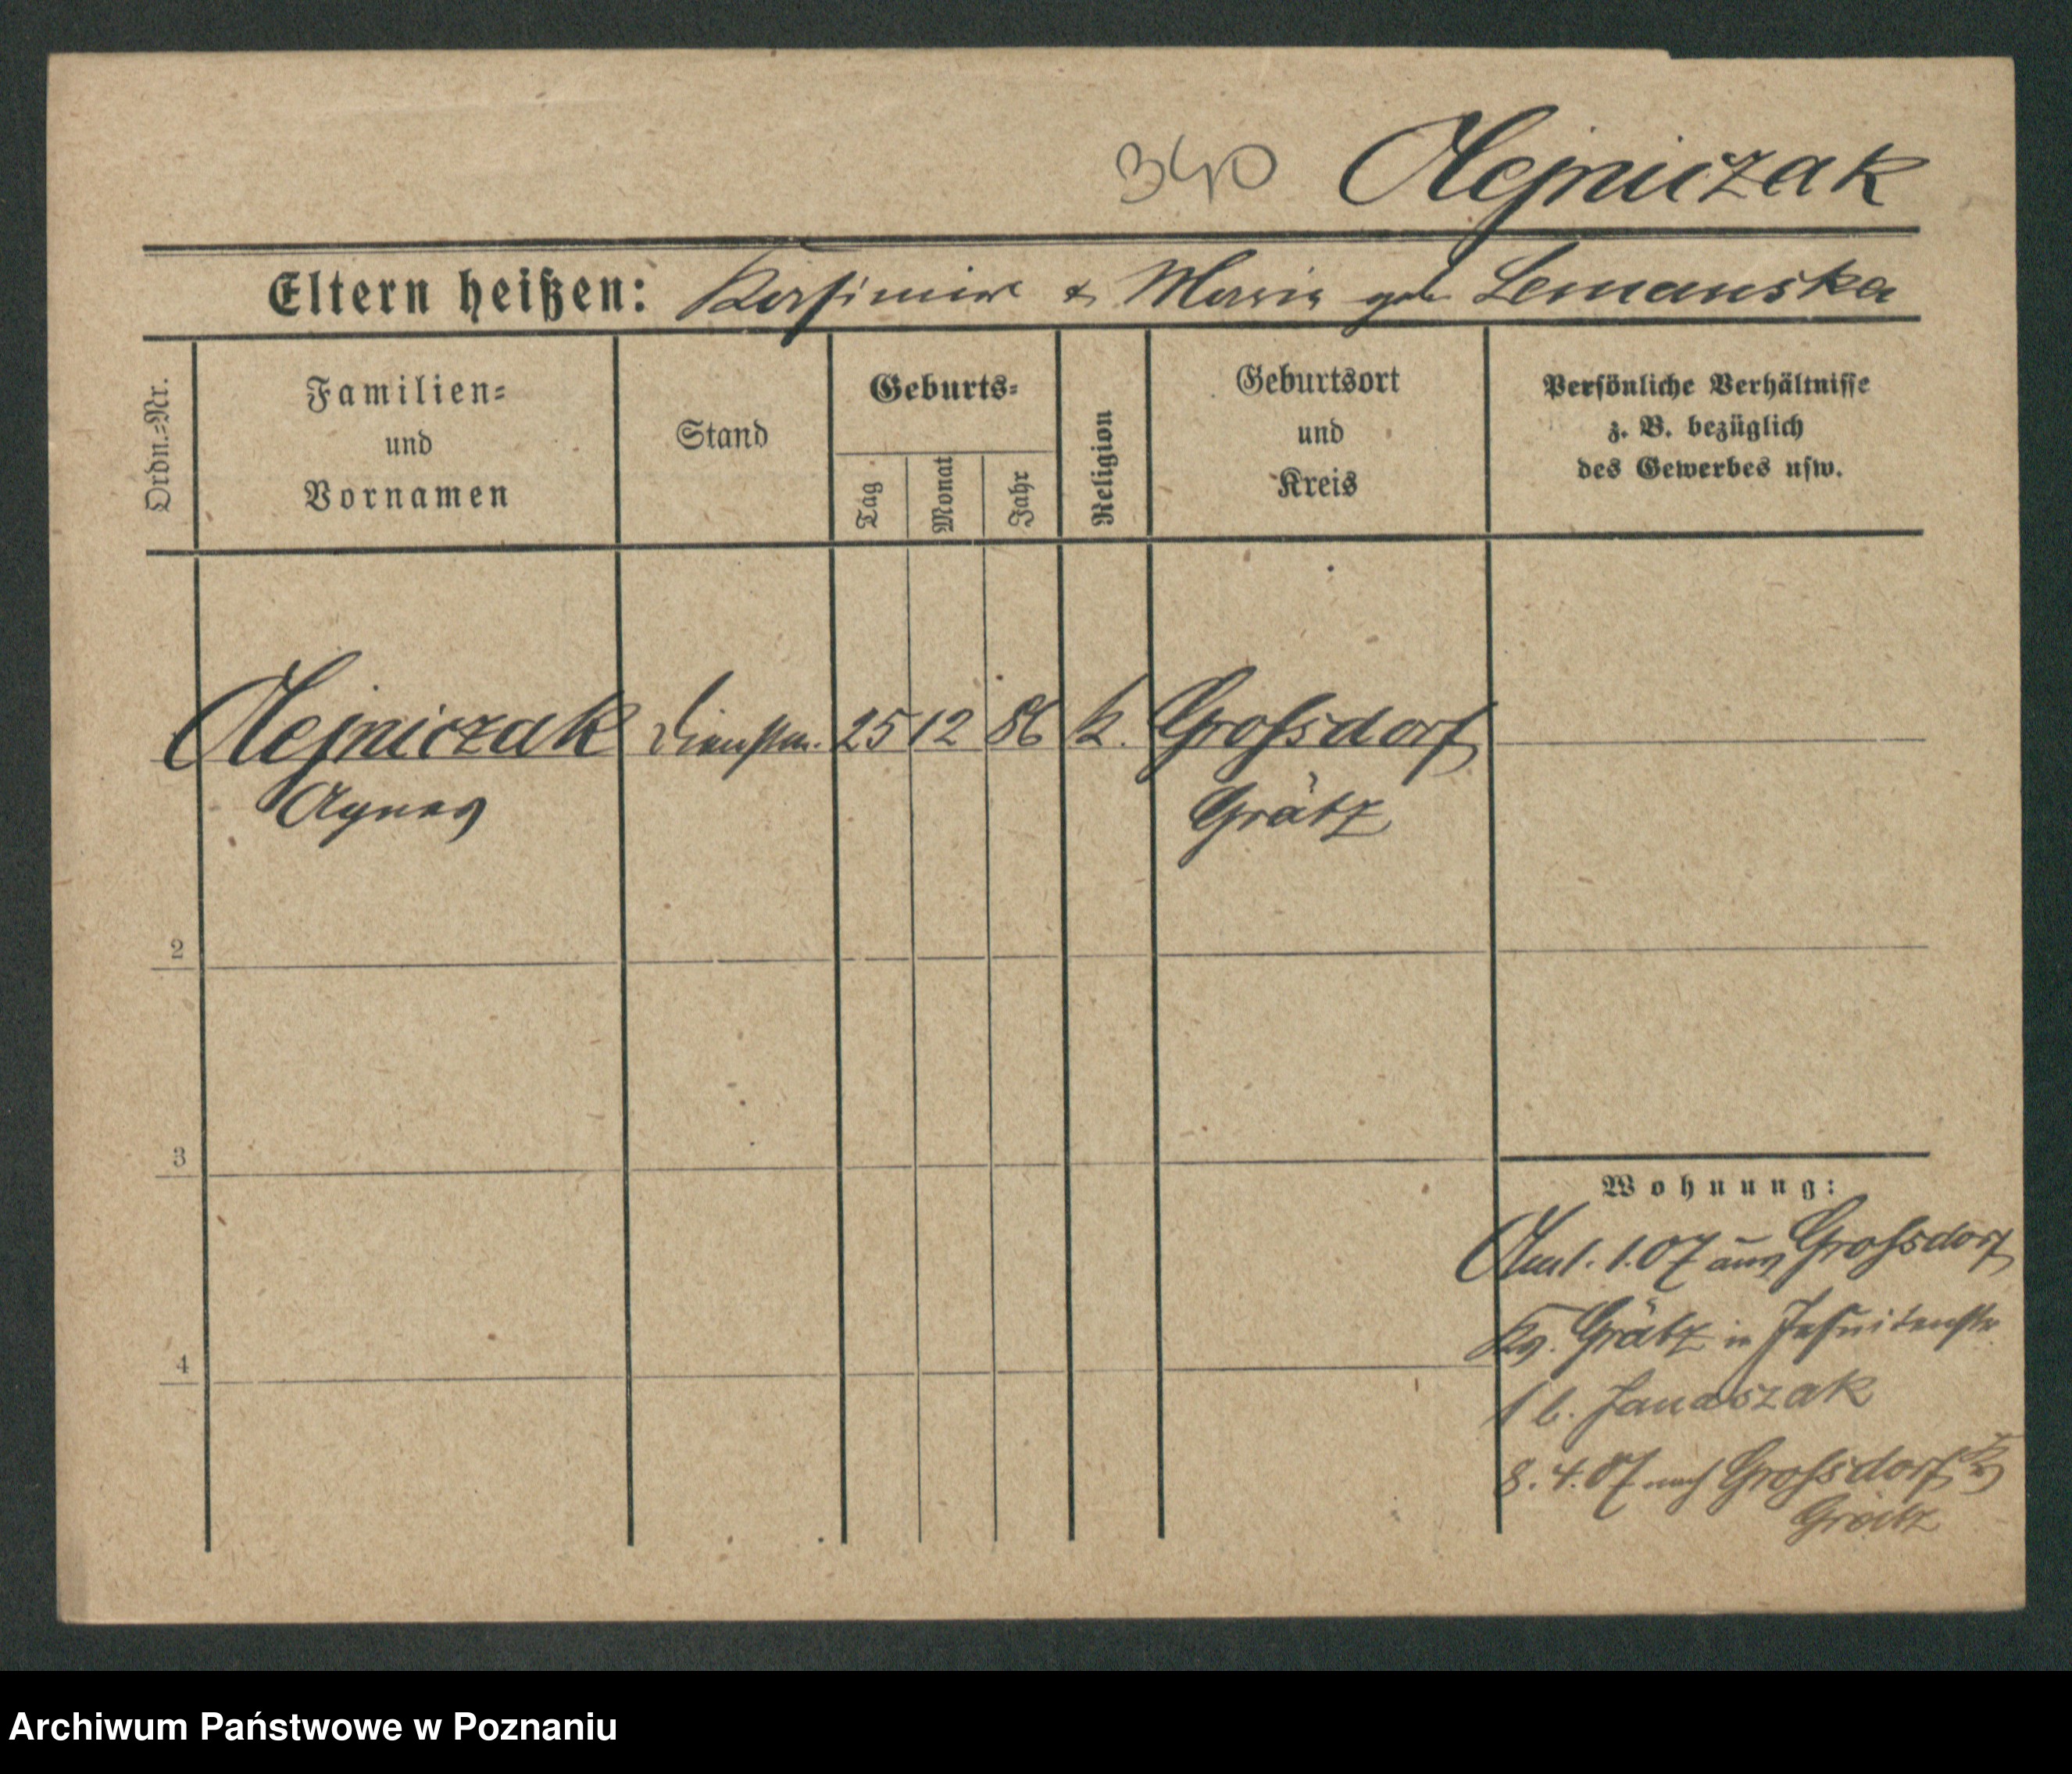 340 Olejniczak
Eltern heißen: Kasimir & Maria geb Lemanska
Ordn.=Nr.
Familien=
und
Vornamen
Stand
Geburts=
Tag
Monat
Jahr
Religion
Geburtsort
und
Kreis
Persönliche Verhältnisse
z. B. bezüglich
des Gewerbes usw.
Olejniczak Dienstm. 25 12 86 k. Grossdorf
Agnes Grätz
2
3
4
Wohnung:
1.07 aus Grossdorf
Grätz in Jesuitenstr
b. Janaszak
8.4.07 nach Grossdorf
Grätz
Archiwum Państwowe w Poznaniu